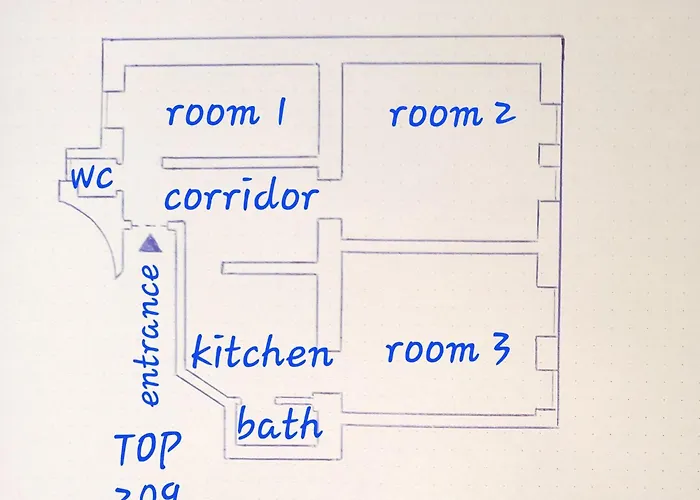 room 1
room 2
wc
corridor
entrance
kitchen
room 3
bath
TOP
209